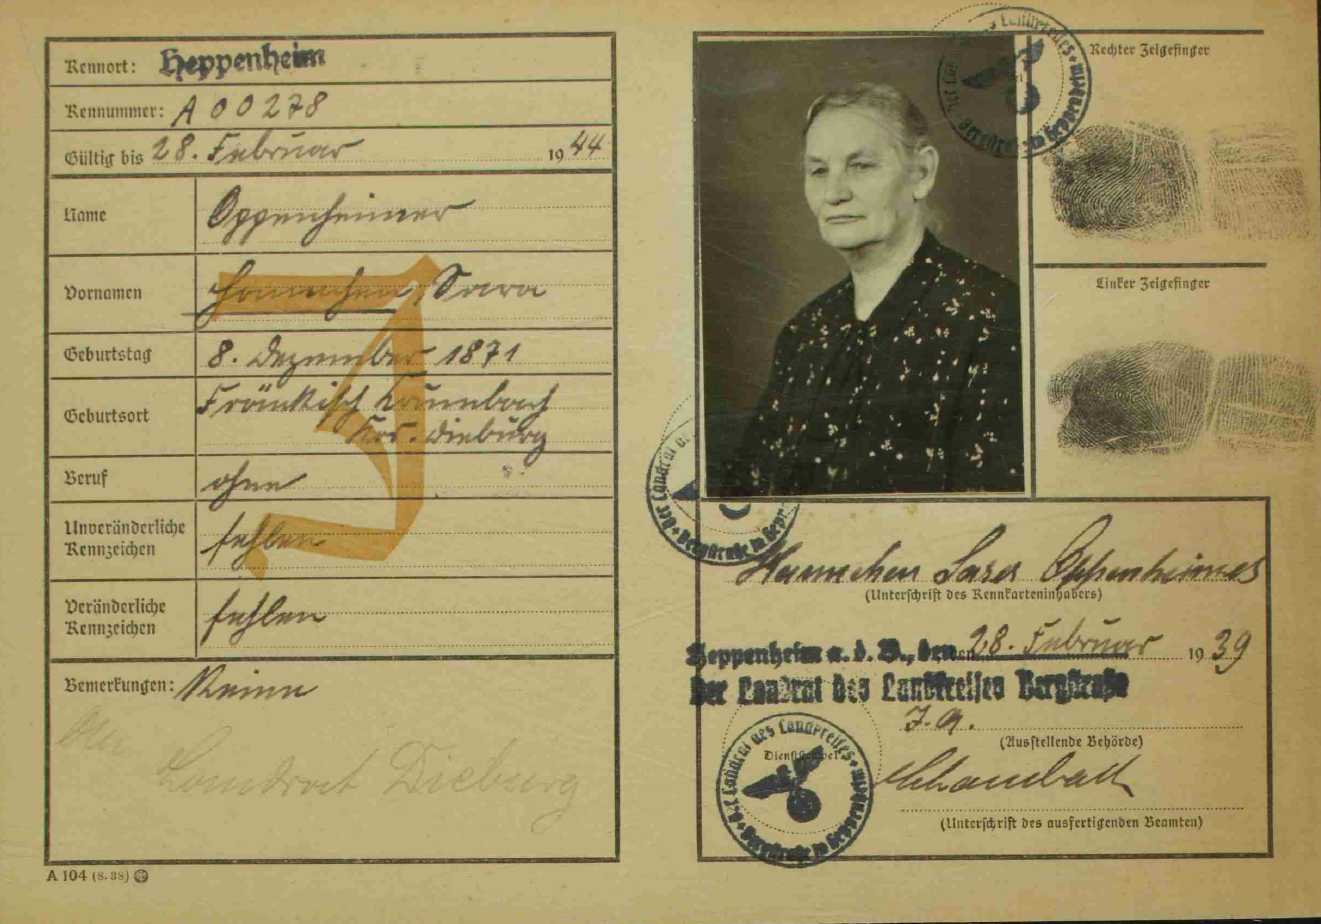 Kennort: Heppenheim
Kennummer: A 00278
Gültig bis 28. Februar 1944
Name Oppenheimer
Vornamen Hannchen Sara
Geburtstag 8. Dezember 1871
Geburtsort Fränkisch Crumbach
Krs. Dieburg
Beruf ohne
Unveränderliche Kennzeichen fehlen
Veränderliche Kennzeichen fehlen
Bemerkungen: Keine
An
Landrat Dieburg
J
A 104 (8. 38)
Rechter Zeigefinger
Linker Zeigefinger
Der Landrat des Landkreises Bergstraße in Heppenheim
Der Landrat des Landkreises Bergstraße in Heppenheim
Hannchen Sara Oppenheimer
(Unterschrift des Kennkarteninhabers)
Heppenheim a. d. B., den 28. Februar 1939
Der Landrat des Landkreises Bergstraße
J. A.
(Ausstellende Behörde)
Dienststempel
Der Landrat des Landkreises Bergstraße in Heppenheim
(Unterschrift des ausfertigenden Beamten)